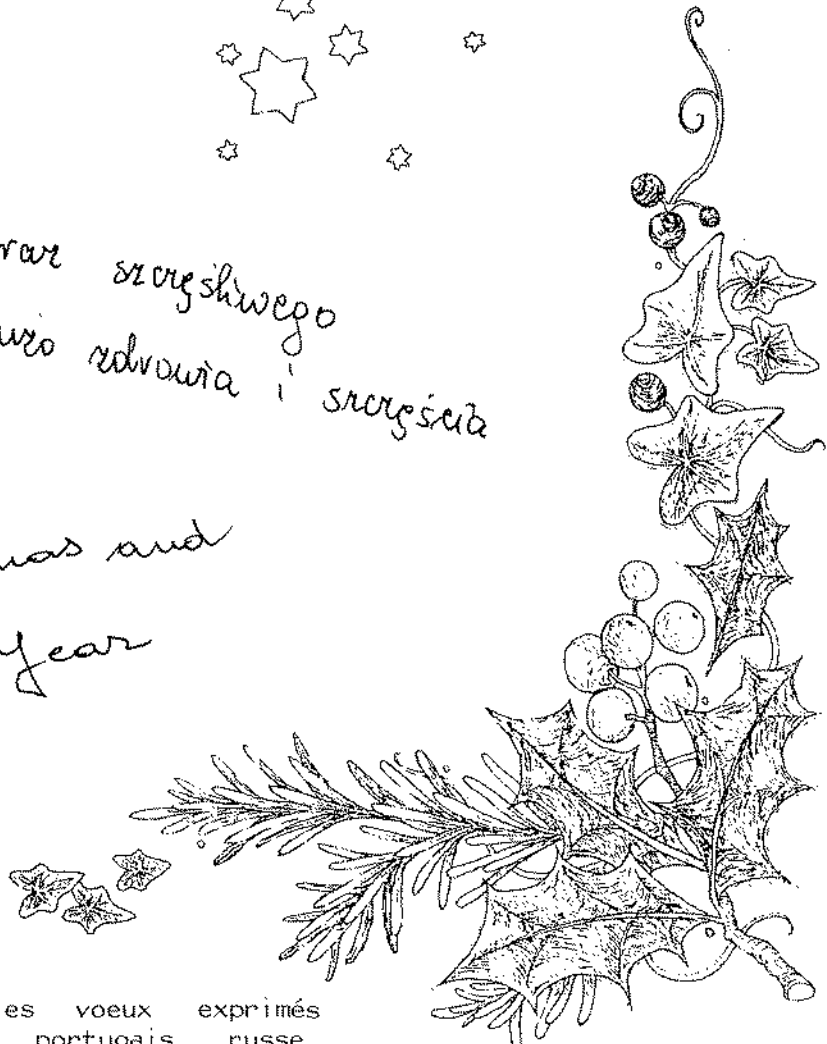 szczęśliwego
zdrowia i szczęścia
and
Year
es voeux exprimés
portugais russe